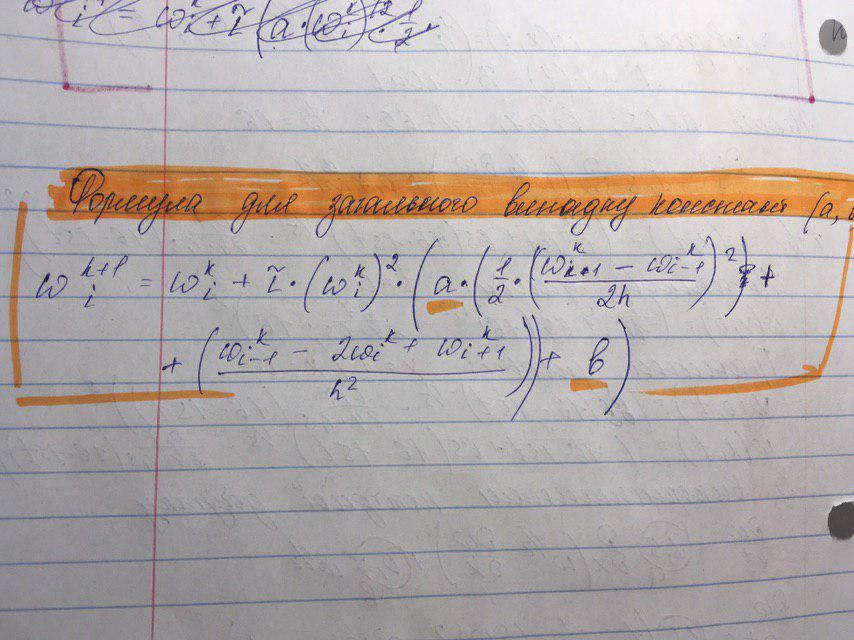 ω_i = ω_i^k + τ (a · (ω_i^k)^2 · 1/2
Формула для загального випадку констант (a, b
ω_i^{k+1} = ω_i^k + τ · (ω_i^k)^2 · (a · (1/2 · ((ω_{i+1}^k − ω_{i−1}^k)/2h)^2) +
+ ((ω_{i−1}^k − 2ω_i^k + ω_{i+1}^k)/h^2)) + b)